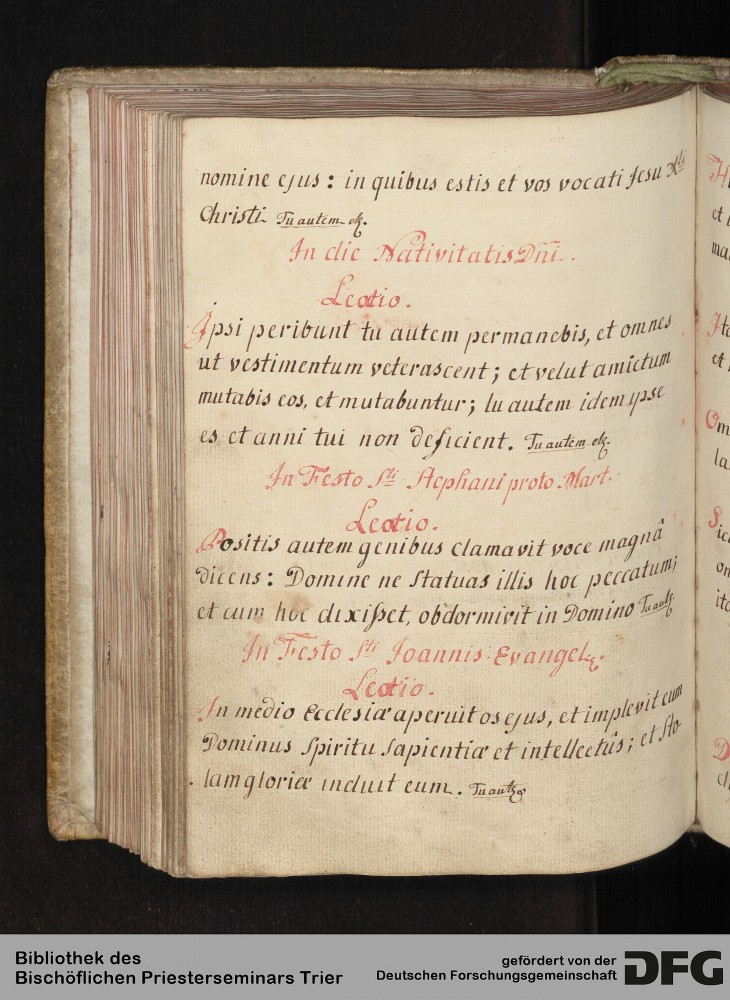 nomine ejus : in quibus estis et vos vocati Jesu Xti
Christi Tu autem etc.
In die Nativitatis Dñi.
Lectio.
Ipsi peribunt tu autem permanebis, et omnes
ut vestimentum veterascent ; et velut amictum
mutabis eos, et mutabuntur ; tu autem idem ypse
es et anni tui non deficient. Tu autem etc.
In Festo Sti Stephani proto Mart.
Lectio.
Positis autem genibus clamavit voce magnâ
dicens : Domine ne statuas illis hoc peccatum ;
et cum hoc dixisset, obdormivit in Domino Tu aut.
In Festo Sti Joannis Evangel.
Lectio.
In medio Ecclesiæ aperuit os ejus, et implevit eum
Dominus Spiritu sapientiæ et intellectûs ; et Sto-
lam gloriæ induit eum. Tu aut
H
et
ma
Ita
et
Om
la
Sic
on
ita
D
Bibliothek des
Bischöflichen Priesterseminars Trier
gefördert von der
Deutschen Forschungsgemeinschaft
DFG